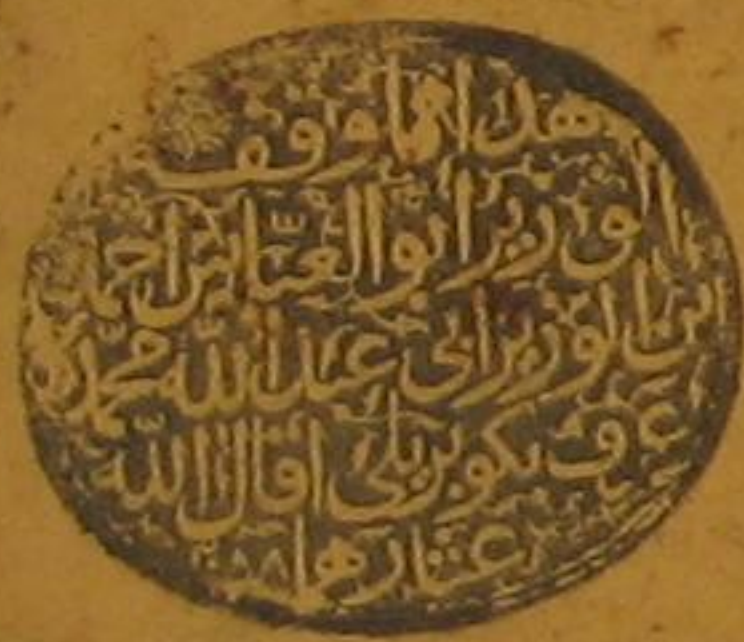 هذا مما وقف
الوزير ابو العباس احمد
ابن الوزير ابي عبد الله محمد
عرف بكوبريلي اقال الله
عثارهما ١٠٨٨